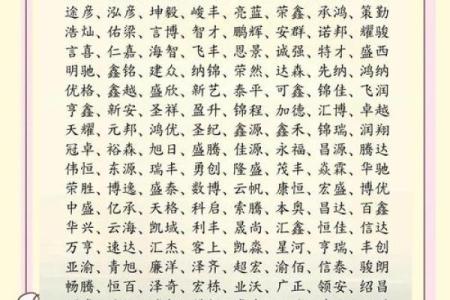 途彦、泓彦、坤毅、峻丰、亮蓝、荣鑫、承鸿、策勤
浩灿、佑梁、言博、智才、鹏辉、安群、诺邦、耀骏
言喜、仁嘉、海智、飞丰、恩景、诚强、特才、盛西
明驰、鑫铭、建众、纳锦、荣然、达森、先纳、鸿纳
优格、鑫越、盛欣、新艺、泰平、可鑫、锦佳、飞润
亨鑫、新安、圣祥、盈升、锦程、加德、汇博、卓越
天耀、元邦、鸿优、圣纪、鑫源、鑫禾、锦瑞、润翔
冠卓、裕森、旭日、盛腾、佳源、永福、昌源、腾达
伟恒、东源、瑞丰、勇创、隆盛、茂丰、焱霖、华驰
荣胜、博逸、盛泰、数博、云帆、康恒、宏盛、博优
中盛、亿承、天格、科启、索腾、本奥、昌达、百鑫
华兴、云海、凯域、利丰、晟尚、汇鑫、恒佳、信达
万亨、速达、汇杰、客上、凯淼、星河、亨瑞、丰创
亚渝、青旭、廉洋、泽齐、超宏、渝佰、信泰、骏朗
畅腾、恒百、泽奇、宏栋、业沃、广正、领安、绍昌